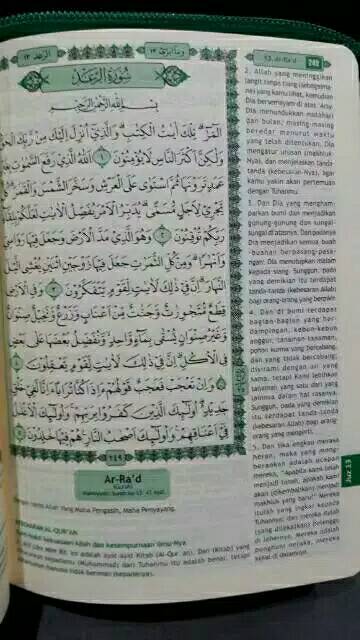 الرعد ١٣
وما ابرئ ١٣
سُورَةُ الرَّعْدِ
بِسْمِ اللَّهِ الرَّحْمَٰنِ الرَّحِيمِ
الٓمٓرٰ تِلْكَ اٰيٰتُ الْكِتٰبِ وَالَّذِيْٓ اُنْزِلَ اِلَيْكَ مِنْ رَّبِّكَ الْحَقُّ
وَلٰكِنَّ اَكْثَرَ النَّاسِ لَا يُؤْمِنُوْنَ ١ اَللّٰهُ الَّذِيْ رَفَعَ السَّمٰوٰتِ بِغَيْرِ
عَمَدٍ تَرَوْنَهَا ثُمَّ اسْتَوٰى عَلَى الْعَرْشِ وَسَخَّرَ الشَّمْسَ وَالْقَمَرَ
يَجْرِيْ لِاَجَلٍ مُّسَمًّى يُدَبِّرُ الْاَمْرَ يُفَصِّلُ الْاٰيٰتِ لَعَلَّكُمْ بِلِقَاۤءِ
رَبِّكُمْ تُوْقِنُوْنَ ٢ وَهُوَ الَّذِيْ مَدَّ الْاَرْضَ وَجَعَلَ فِيْهَا رَوَاسِيَ
وَاَنْهٰرًا وَمِنْ كُلِّ الثَّمَرٰتِ جَعَلَ فِيْهَا زَوْجَيْنِ اثْنَيْنِ يُغْشِى الَّيْلَ
النَّهَارَ اِنَّ فِيْ ذٰلِكَ لَاٰيٰتٍ لِّقَوْمٍ يَّتَفَكَّرُوْنَ ٣ وَفِى الْاَرْضِ
قِطَعٌ مُّتَجٰوِرٰتٌ وَّجَنّٰتٌ مِّنْ اَعْنَابٍ وَّزَرْعٌ وَّنَخِيْلٌ صِنْوَانٌ
وَّغَيْرُ صِنْوَانٍ يُّسْقٰى بِمَاۤءٍ وَّاحِدٍ وَنُفَضِّلُ بَعْضَهَا عَلٰى بَعْضٍ
فِى الْاُكُلِ اِنَّ فِيْ ذٰلِكَ لَاٰيٰتٍ لِّقَوْمٍ يَّعْقِلُوْنَ ٤
وَاِنْ تَعْجَبْ فَعَجَبٌ قَوْلُهُمْ ءَاِذَا كُنَّا تُرٰبًا ءَاِنَّا لَفِيْ خَلْقٍ
جَدِيْدٍ اُولٰۤىِٕكَ الَّذِيْنَ كَفَرُوْا بِرَبِّهِمْ وَاُولٰۤىِٕكَ الْاَغْلٰلُ
فِيْٓ اَعْنَاقِهِمْ وَاُولٰۤىِٕكَ اَصْحٰبُ النَّارِ هُمْ فِيْهَا خٰلِدُوْنَ ٥
٢٤٩
Ar-Ra'd
(Guruh)
Surah ke-13: 43 ayat
nama Allah Yang Maha Pengasih, Maha Penyayang.
KEBENARAN AL-QUR'AN
kekuasaan Allah dan kesempurnaan ilmu-Nya
Mim Ra. Ini adalah ayat-ayat Kitab (Al-Qur'an). Dan (Kitab) yang
kepadamu (Muhammad) dari Tuhanmu itu benar; tetapi
manusia tidak beriman (kepadanya).
13. Ar-Ra'd
249
2. Allah yang meninggikan
langit tanpa tiang (sebagaima-
na) yang kamu lihat, kemudian
Dia bersemayam di atas 'Arsy.
Dia menundukkan matahari
dan bulan; masing-masing
beredar menurut waktu
yang telah ditentukan. Dia
mengatur urusan (makhluk-
Nya), dan menjelaskan tanda-
tanda (kebesaran-Nya), agar
kamu yakin akan pertemuan
dengan Tuhanmu.
3. Dan Dia yang mengham-
parkan bumi dan menjadikan
gunung-gunung dan sungai-
sungai di atasnya. Dan padanya
Dia menjadikan semua buah-
buahan berpasang-pasa-
ngan; Dia menutupkan malam
kepada siang. Sungguh, pada
yang demikian itu terdapat
tanda-tanda (kebesaran Allah)
bagi orang-orang yang berpikir.
4. Dan di bumi terdapat
bagian-bagian yang ber-
dampingan, kebun-kebun
anggur, tanaman-tanaman,
pohon kurma yang bercabang,
dan yang tidak bercabang;
disirami dengan air yang
sama, tetapi Kami lebihkan
tanaman yang satu dari yang
lainnya dalam hal rasanya.
Sungguh, pada yang demikian
itu terdapat tanda-tanda
(kebesaran Allah) bagi orang-
orang yang mengerti.
5. Dan jika engkau merasa
heran, maka yang meng-
herankan adalah ucapan
mereka, "Apabila kami telah
menjadi tanah, apakah kami
akan (dikembalikan) menjadi
makhluk yang baru?" Mereka
itulah yang ingkar kepada
Tuhannya; dan mereka itulah
(yang dilekatkan) belenggu
di lehernya. Mereka adalah
penghuni neraka, mereka
kekal di dalamnya.
Juz 13